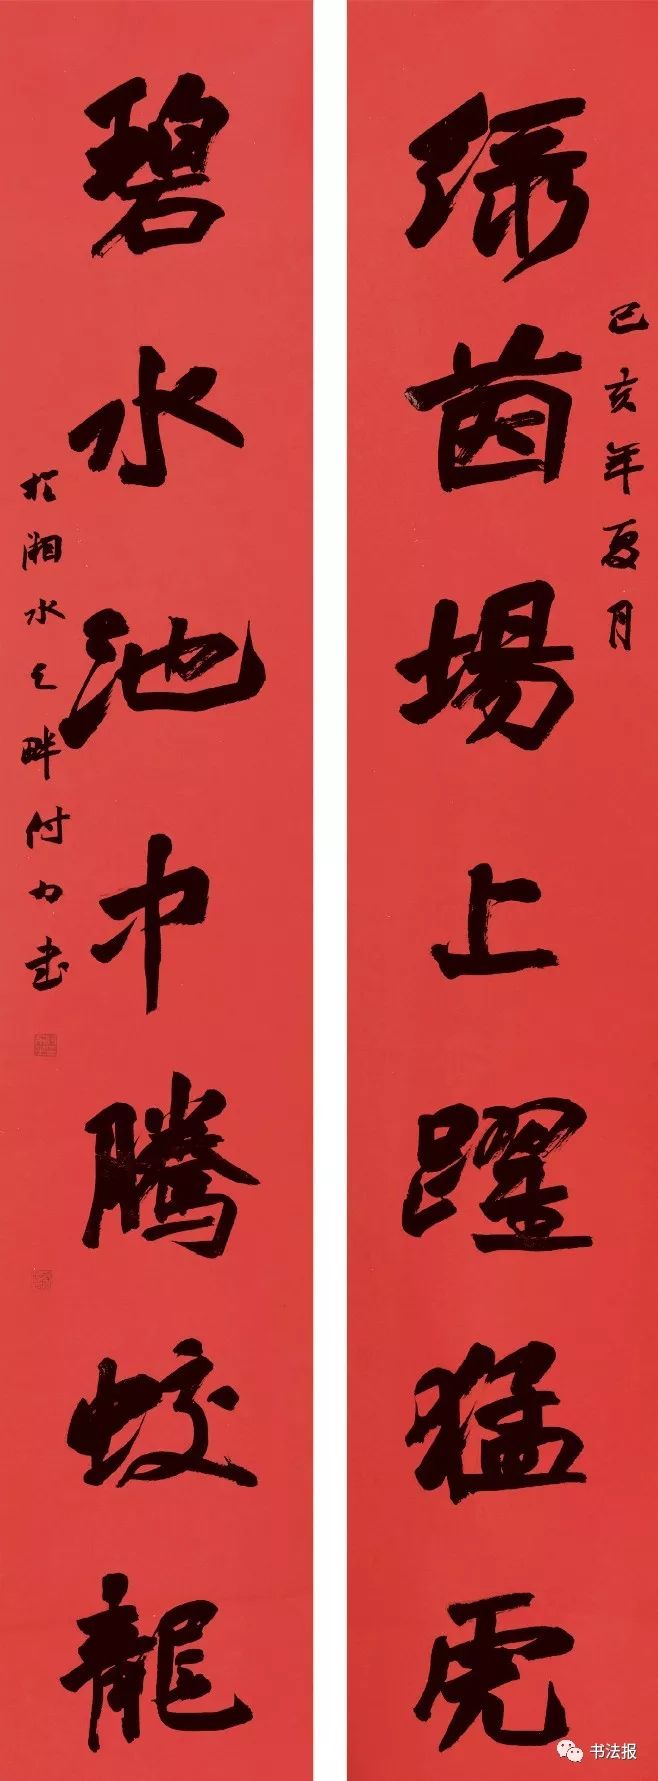 绿茵場上躍猛虎
己亥年夏月
碧水池中騰蛟龍
於湘水之畔付力书
书法报